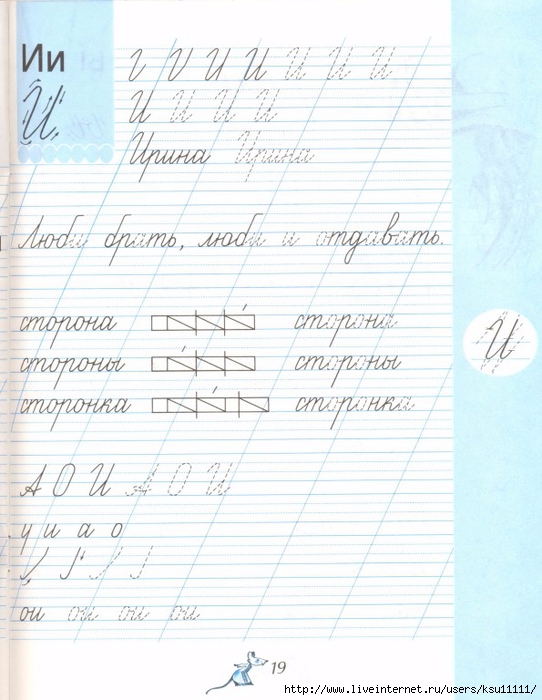 Ии
И И И И И
И И И И
Ирина Ирина
Люби брать, люби и отдавать.
сторона сторона
стороны стороны
сторонка сторонка
И
А О И А О И
у и а о
ои ои ои ои
19
http://www.liveinternet.ru/users/ksu11111/